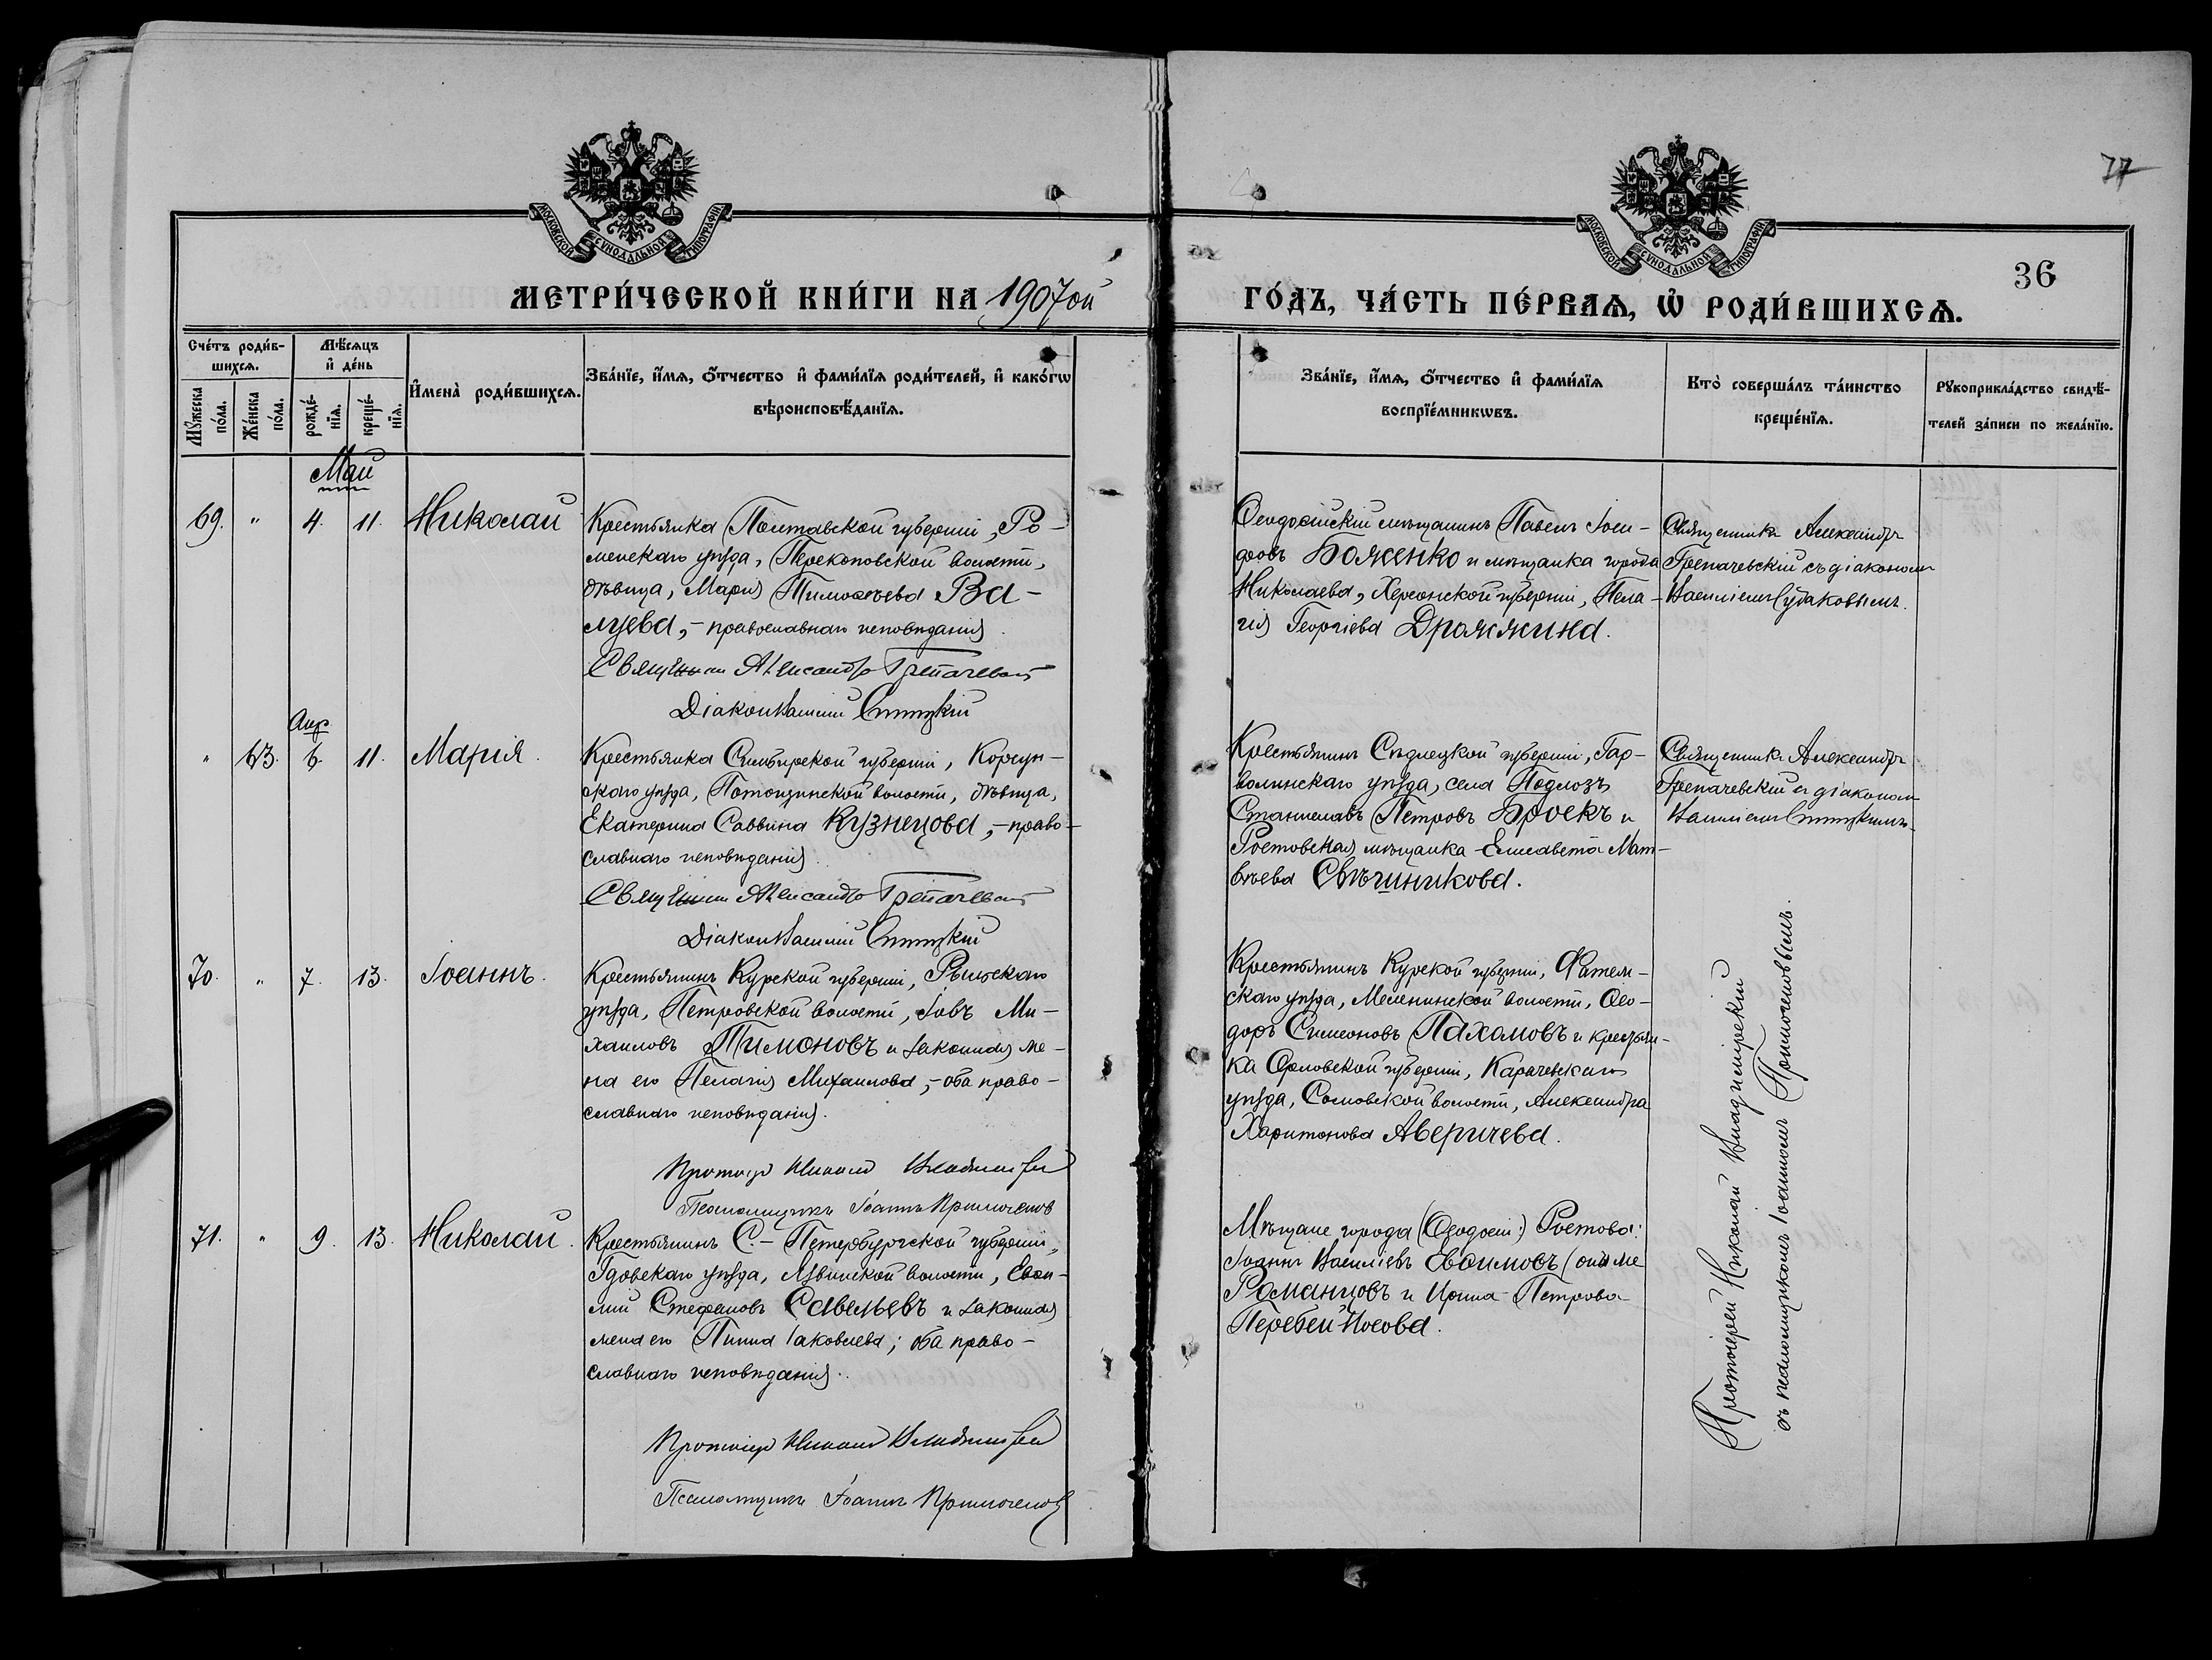 77
36
МОСКОВСКОЙ СѴНОДАЛЬНОЙ ТИПОГРАФІИ
МОСКОВСКОЙ СѴНОДАЛЬНОЙ ТИПОГРАФІИ
МЕТРИ́ЧЕСКОЙ КНИ́ГИ НА 1907ой
ГО́ДЪ, ЧА́СТЬ ПЕ́РВАѦ, Ѡ҆ РОДИ́ВШИХСѦ.
Сче́тъ роди́в-
шихсѧ.
Мꙋ́жеска по́ла.
Же́нска по́ла.
Мѣ́сѧцъ
и҆ де́нь
рожде́-
нїѧ.
креще́-
нїѧ.
И҆мена̀ роди́вшихсѧ.
Зва́нїе, и҆́мѧ, ѻ҆́тчество и҆ фами́лїѧ роди́телей, и҆ како́гѡ
вѣроисповѣ́данїѧ.
Зва́нїе, и҆́мѧ, ѻ҆́тчество и҆ фами́лїѧ
воспрїе́мникѡвъ.
Кто̀ соверша́лъ та́инство
креще́нїѧ.
Рꙋкоприкла́дство свидѣ́-
телей за́писи по жела́нїю.
Май
69. " 4. 11. Николай
Крестьянка Полтавской губерніи, Ро-
менскаго уѣзда, Перекоповской волости,
дѣвица, Марія Тимоѳѣева Ва-
луева,- православнаго исповѣданія.
Священник Александр Грепачевскій
Діаконъ Василий
Ѳеодосійскій мѣщанинъ Павелъ Іоси-
фовъ Боженко и мѣщанка города
Николаева, Херсонской губерніи, Пела-
гія Георгіева Дражжина.
Священникъ Александръ
Грепачевскій съ діакономъ
Василіемъ
Апр
" 63. 6. 11. Марія.
Крестьянка Симбирской губерніи, Корсун-
скаго уѣзда, волости, дѣвица,
Екатерина Саввина Кузнецова,- право-
славнаго исповѣданія.
Священник Александр Грепачевскій
Діаконъ Василий
Крестьянинъ Сѣдлецкой губерніи, Гар-
волинскаго уѣзда, села Подлозъ
Станиславъ Петровъ Броекъ и
Ростовская мѣщанка Елисавета Мат-
вѣева Свѣшникова.
Священникъ Александръ
Грепачевскій съ діакономъ
Василіемъ
70. " 7. 13. Іоаннъ.
Крестьянинъ Курской губерніи, Рыльскаго
уѣзда, Петровской волости, Іовъ Ми-
хаиловъ Тимоновъ и законная же-
на его Пелагія Михаилова,- оба право-
славнаго исповѣданія.
Протоіер Николай Владимірскій
Псаломщикъ Іоаннъ
Крестьянинъ Курской губерніи, Фатеж-
скаго уѣзда, Меленинской волости, Ѳео-
доръ Симеоновъ Пахомовъ и крестьян-
ка Орловской губерніи, Карачевскаго
уѣзда, волости, Александра
Харитонова Аверичева.
71. " 9. 13. Николай.
Крестьянинъ С.-Петербургской губерніи,
Гдовскаго уѣзда, волости, Евѳи-
мій Стефановъ Савельевъ и законная
жена его Іаковлева; оба право-
славнаго исповѣданія.
Протоіер Николай Владимірскій
Псаломщикъ Іоаннъ
Мѣщане города (Ѳеодосіи:) Ростова:
Іоаннъ Василіевъ Евѳимовъ (онъ же
Романцовъ и Ирина Петрова
Перебей-Носова.
Протоіерей Николай Владимірскій
съ псаломщикомъ Іоанномъ